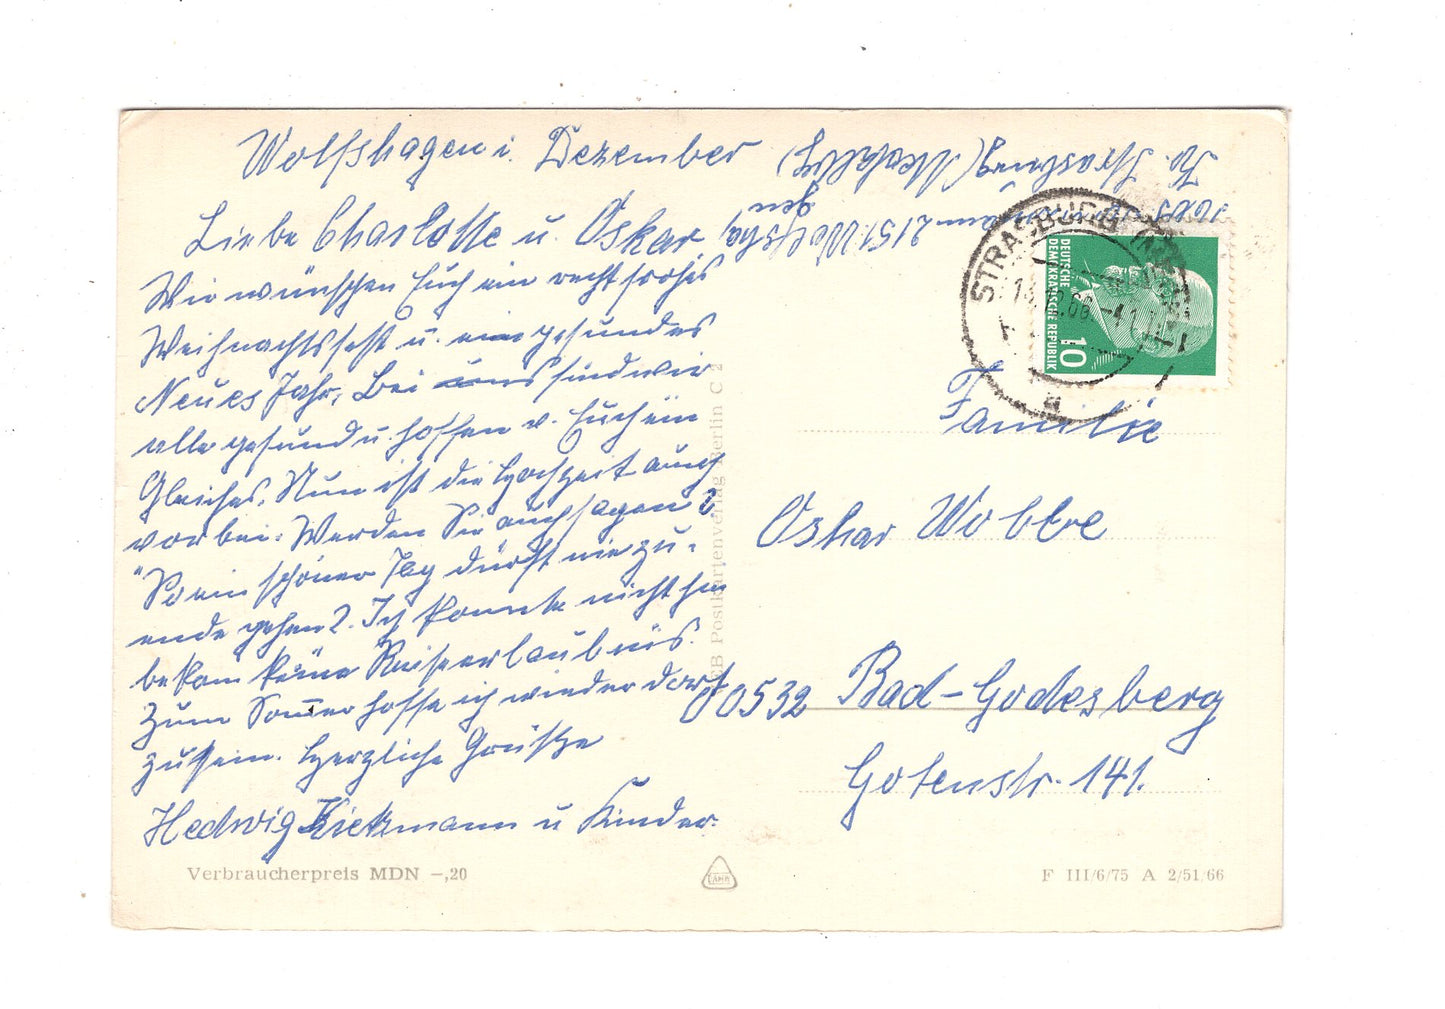 Wolfshagen i. Dezember
Liebe Charlotte u. Oskar!
Wir wünschen Euch ein recht frohes
Weihnachtsfest u. ein gesundes
Neues Jahr. Bei uns sind wir
alle gesund u. hoffen v. Euch ein
Gleiches. Nun ist die Hochzeit auch
vorbei. Werden Sie auch sagen?
"So ein schöner Tag dürft nie zu-
ende gehen?. Ich konnte nicht hin
bekam keine Reiseerlaubnis.
Zum Sommer hoffe ich wieder dort
zu sein. Herzliche Grüße
Hedwig Kiekmann u Kinder.
2151 Wolfshagen
Kr. Strasburg (Meckblbg)
STRASBURG
12.66
DEUTSCHE
DEMOKRATISCHE REPUBLIK
10
Familie
Oskar Wobbe
00532 Bad-Godesberg
Gotenstr. 141.
Postkartenverlag Berlin C 2
Verbraucherpreis MDN -,20
F III/6/75 A 2/51/66